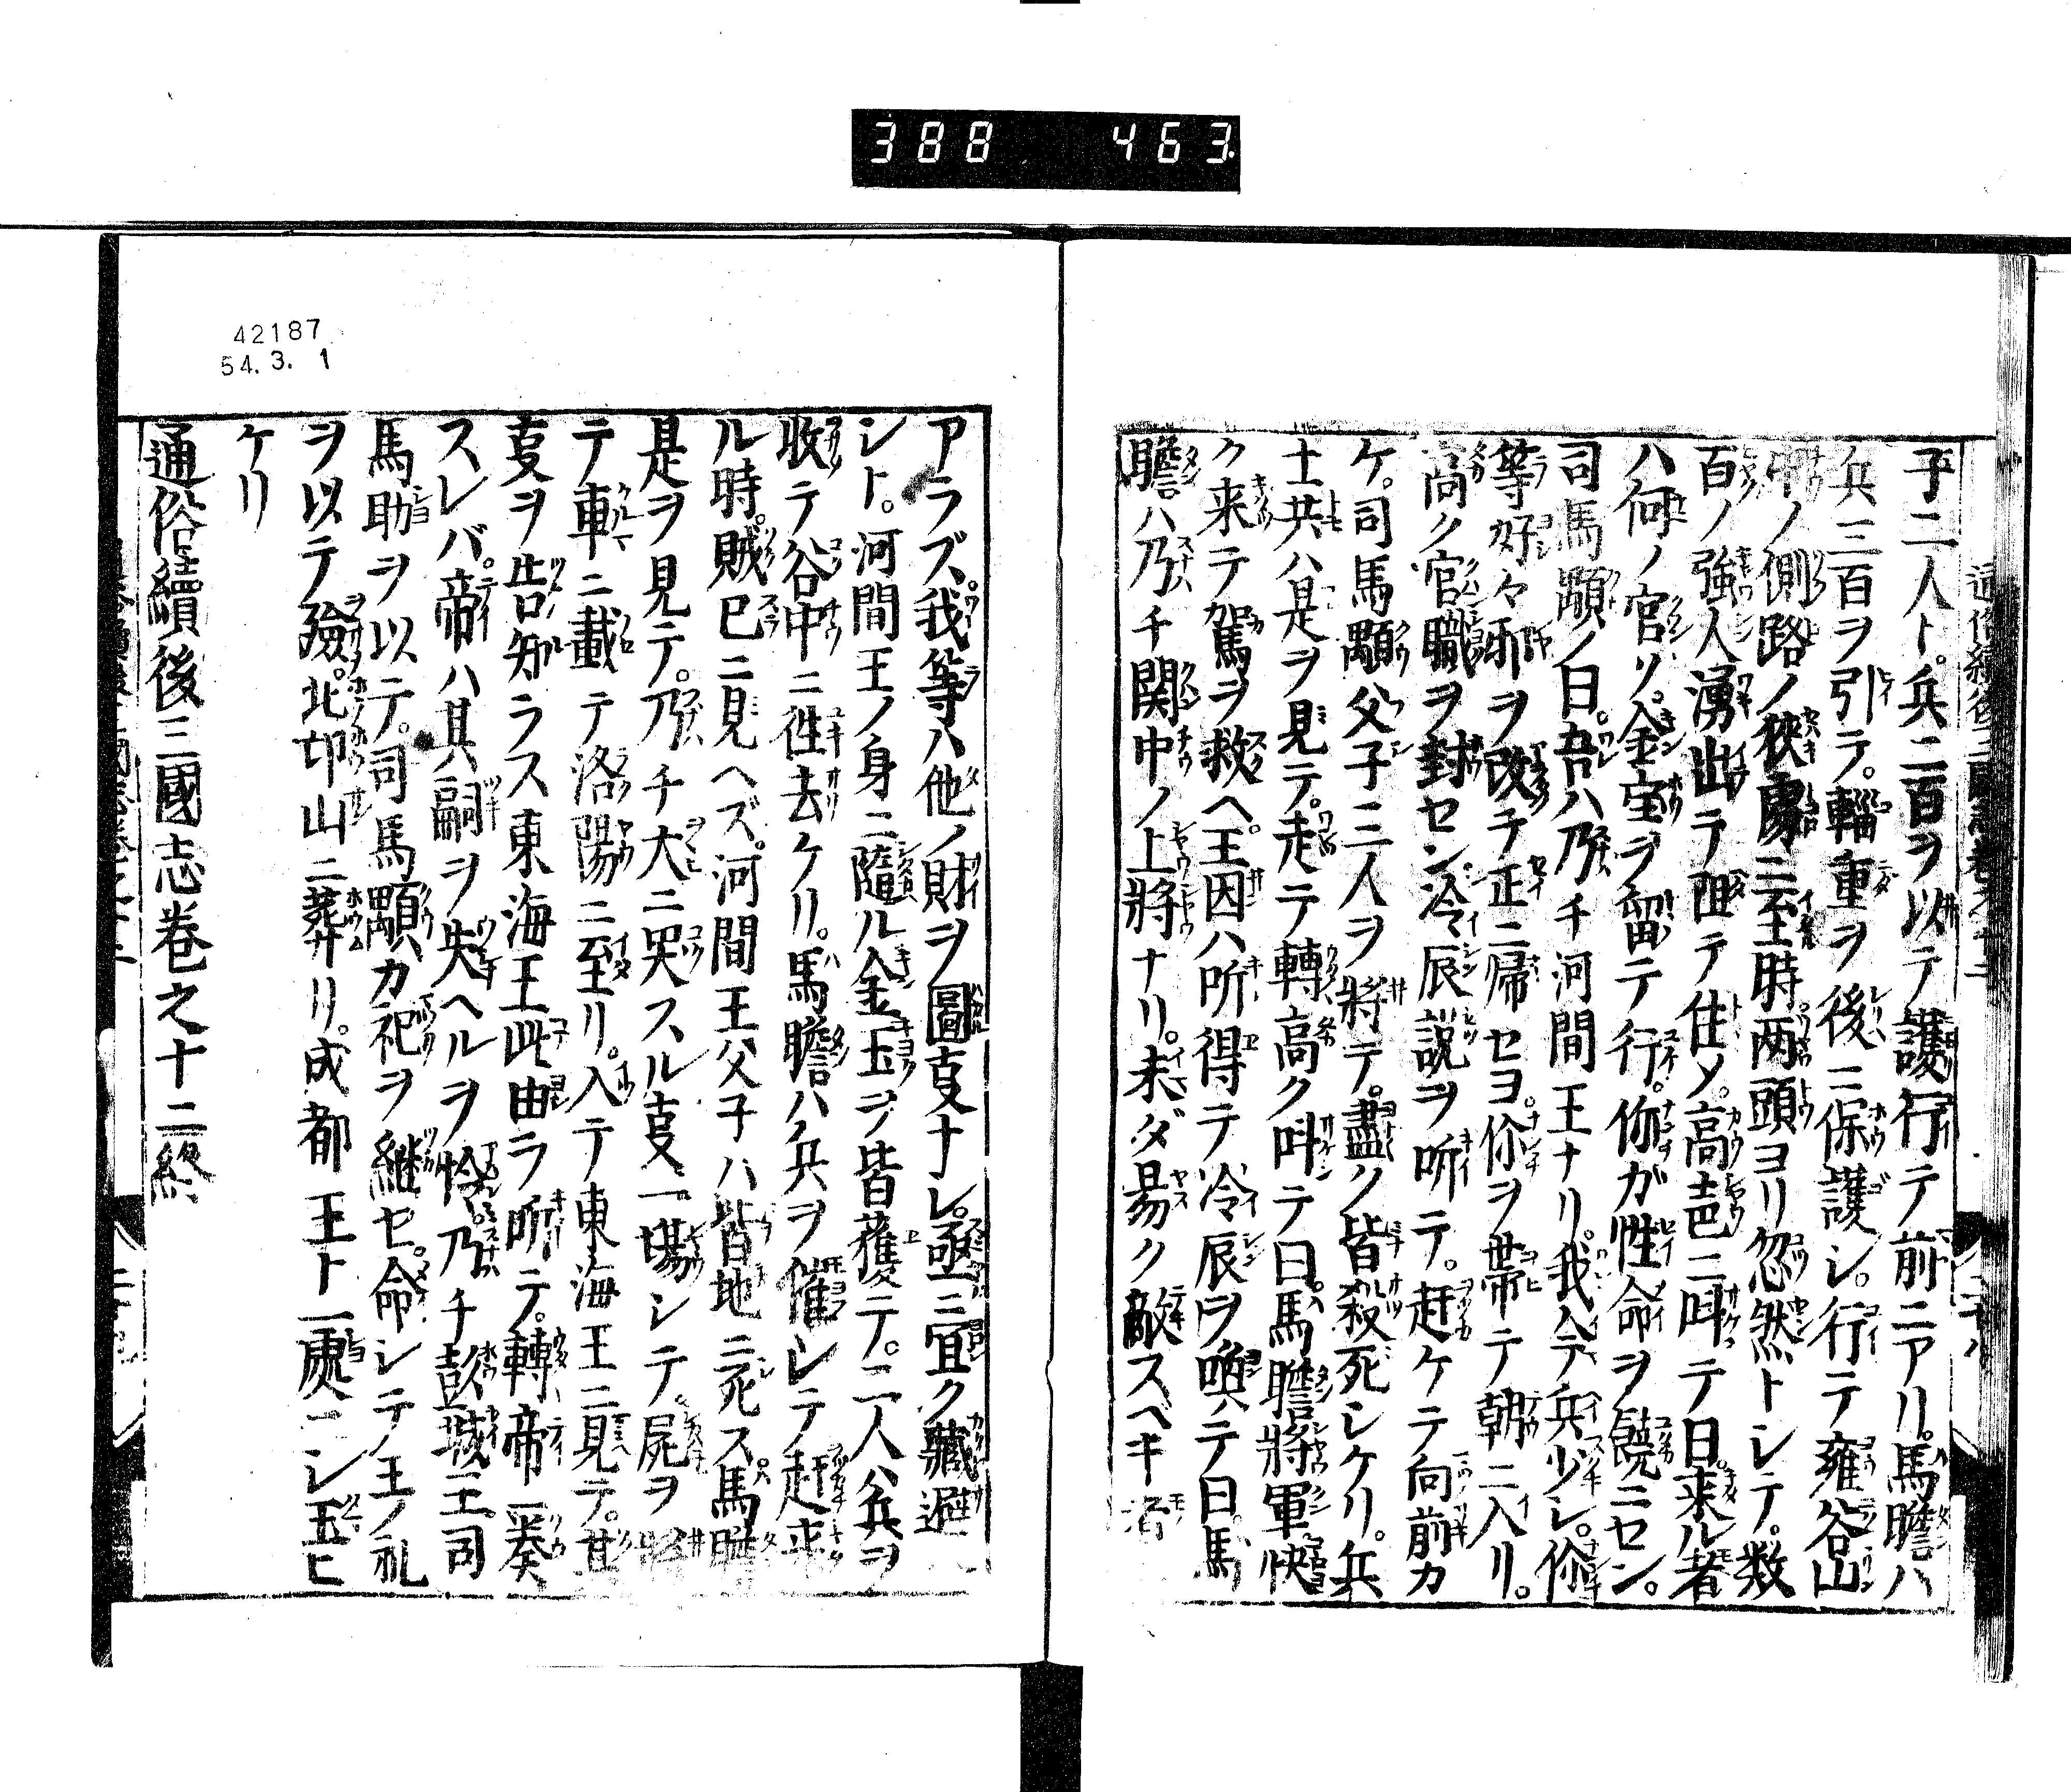 388 463.
子二人ト。兵二百ヲ以テ護行テ前ニアリ。馬瞻ハ
兵三百ヲ引テ。輜重ヲ後ニ保護シ。行テ雍谷山
中ノ側路ノ狹處ニ至時。両頭ヨリ忽然トシテ。数
百ノ強人湧出テ阻テ住メ。高声ニ呌テ曰。来ル者
ハ何ノ官ソ。金宝ヲ留テ行。伱ガ性命ヲ饒ニセン。
司馬顒ノ曰。吾ハ乃チ河間王ナリ。我今兵少シ。伱
等好々邪ヲ改チ正ニ帰セヨ。伱ヲ帯テ朝ニ入リ。
高ク官職ヲ封セン冷辰説ヲ听テ。赶ケテ向前カ
ケ。司馬顒父子三人ヲ將テ。盡ク皆殺死シケリ。兵
士共ハ是ヲ見テ。走テ轉高ク呌テ曰。馬瞻將軍快
ク来テ駕ヲ救ヘ。王因ハ听得テ冷辰ヲ喚テ曰馬
瞻ハ乃チ関中ノ上將ナリ。未ダ易ク敵スヘキ
アラズ。我等ハ他ノ財ヲ圖叓ナレ。亟ニ宜ク藏避
シト。河間王ノ身ニ隨ル金玉ヲ皆獲テ。二人ハ兵ヲ
收テ谷中ニ徃去ケリ。馬瞻ハ兵ヲ催シテ赶来
ル時。賊已ニ見ヘズ。河間王父子ハ皆地ニ死ス。馬瞻
是ヲ見テ。乃チ大ニ哭スル叓一塲シテ。屍ヲ將
テ車ニ載テ洛陽ニ至リ。入テ東海王ニ見テ。其
叓ヲ告知ラス東海王此由ヲ听テ。轉帝ニ奏
スレバ。帝ハ其嗣ヲ失ヘルヲ怜。乃チ彭城王司
馬助ヲ以テ。司馬顒カ祀ヲ継セ。命シテ王ノ礼
ヲ以テ殮。北邙山ニ葬リ。成都王ト一處ニシ玉ヒ
ケリ
通俗續後三國志卷之十二終
42187
54.3.1